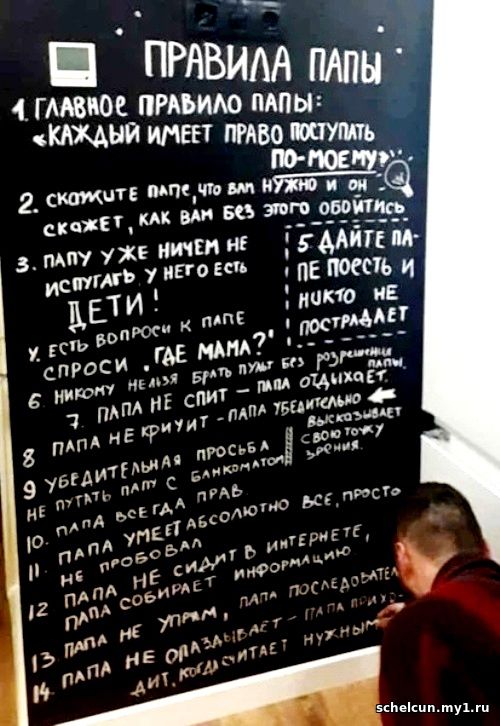 ПРАВИЛА ПАПЫ
1. ГЛАВНОЕ ПРАВИЛО ПАПЫ:
«КАЖДЫЙ ИМЕЕТ ПРАВО ПОСТУПАТЬ
ПО-МОЕМУ»
2. СКАЖИТЕ ПАПЕ, ЧТО ВАМ НУЖНО И ОН
СКАЖЕТ, КАК ВАМ БЕЗ ЭТОГО ОБОЙТИСЬ
3. ПАПУ УЖЕ НИЧЕМ НЕ
ИСПУГАТЬ У НЕГО ЕСТЬ
ДЕТИ!
Ч. ЕСТЬ ВОПРОСЫ К ПАПЕ
СПРОСИ „ГДЕ МАМА?"
5 ДАЙТЕ ПА-
ПЕ ПОЕСТЬ И
НИКТО НЕ
ПОСТРАДАЕТ
6. НИКОМУ НЕЛЬЗЯ БРАТЬ ПУЛЬТ БЕЗ РАЗРЕШЕНИЯ
ПАПЫ.
7. ПАПА НЕ СПИТ – ПАПА ОТДЫХАЕТ.
8 ПАПА НЕ КРИЧИТ - ПАПА УБЕДИТЕЛЬНО
ВЫСКАЗЫВАЕТ
СВОЮ ТОЧКУ
ЗРЕНИЯ.
9 УБЕДИТЕЛЬНАЯ ПРОСЬБА
НЕ ПУТАТЬ ПАПУ С БАНКОМАТОМ
10. ПАПА ВСЕГДА ПРАВ.
11. ПАПА УМЕЕТ АБСОЛЮТНО ВСЕ, ПРОСТО
НЕ ПРОБОВАЛ
12 ПАПА НЕ СИДИТ В ИНТЕРНЕТЕ,
ПАПА СОБИРАЕТ ИНФОРМАЦИЮ.
13. ПАПА НЕ УПРЯМ, ПАПА ПОСЛЕДОВАТЕЛ
14. ПАПА НЕ ОПАЗДЫВАЕТ – ПАПА ПРИХО-
ДИТ, КОГДА СЧИТАЕТ НУЖНЫМ
schelcun.my1.ru